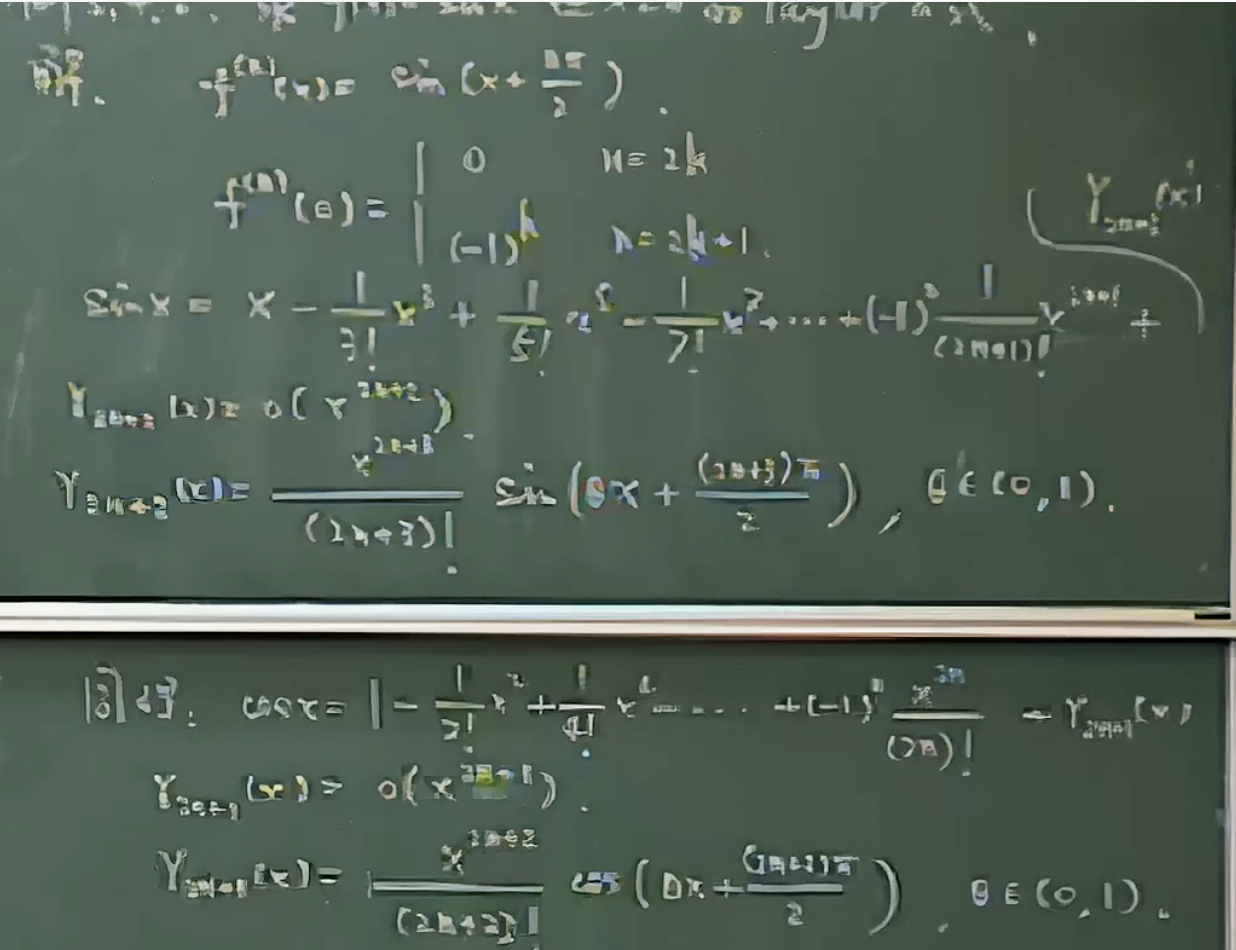 f⁽ⁿ⁾(x) = sin(x + nπ/2).
f⁽ⁿ⁾(0) = { 0 n = 2k
(-1)ᵏ n = 2k+1.
sin x = x - 1/3! x³ + 1/5! x⁵ - 1/7! x⁷ + ... + (-1)ⁿ 1/(2n+1)! x²ⁿ⁺¹ + r₂ₙ₊₂(x)
r₂ₙ₊₂(x) = o(x²ⁿ⁺²).
r₂ₙ₊₂(x) = x²ⁿ⁺³/(2n+3)! sin(θx + (2n+3)π/2), θ∈(0,1).
cos x = 1 - 1/2! x² + 1/4! x⁴ - ... + (-1)ⁿ x²ⁿ/(2n)! + r₂ₙ₊₁(x)
r₂ₙ₊₁(x) = o(x²ⁿ⁺¹).
r₂ₙ₊₁(x) = x²ⁿ⁺²/(2n+2)! cos(θx + (2n+2)π/2). θ∈(0,1).